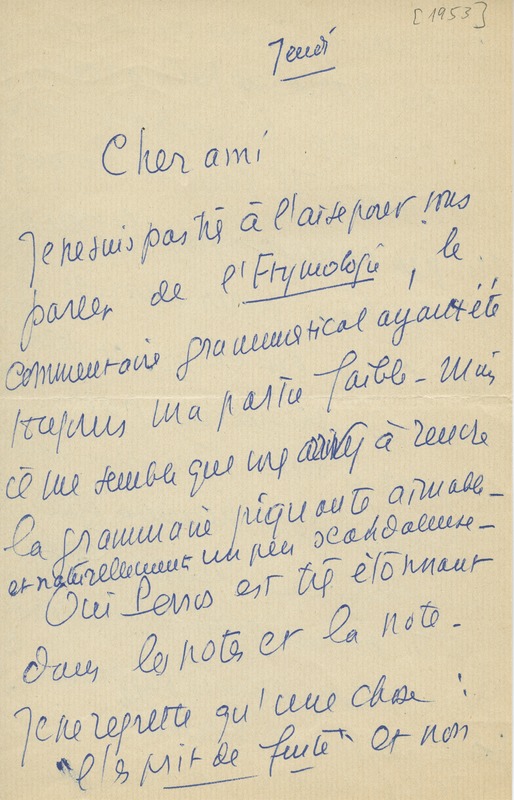 [1953]
Jeudi
Cher ami
Je ne suis pas très à l'aise pour vous
parler de l'Etymologie, le
commentaire grammatical ayant été
toujours ma partie faible - Mais
il me semble que vous arrivez à rendre
la grammaire piquante aimable -
et naturellement un peu scandaleuse -
Oui Perros est très étonnant
dans les notes et la note -
Je ne regrette qu'une chose :
"l'esprit de suite" et non